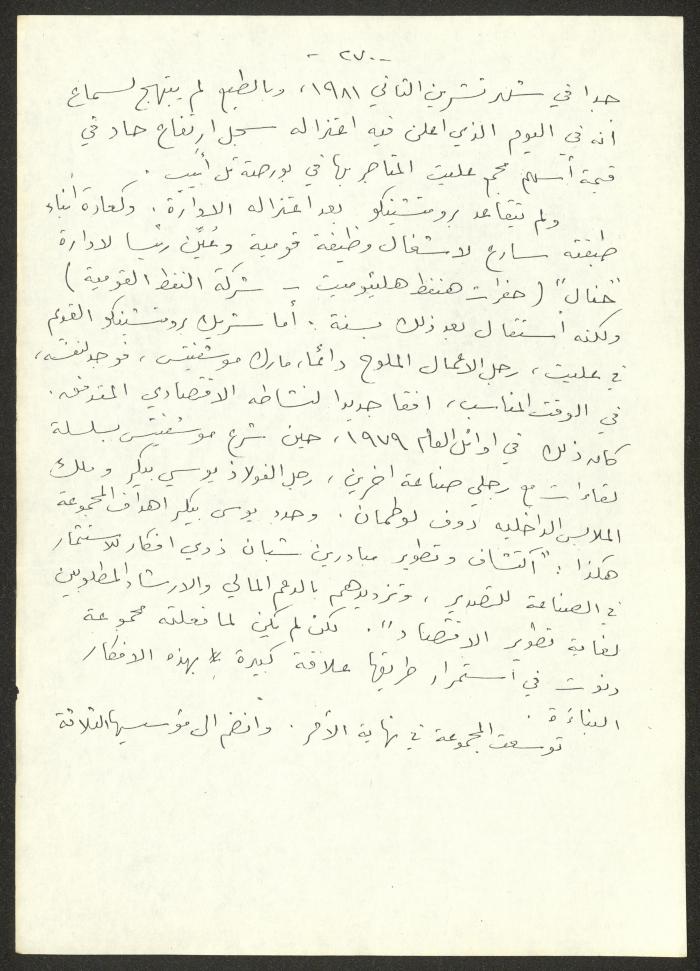 - ٢٧٠ -
جدا في شهر تشرين الثاني ١٩٨١، وبالطبع لم يبتهج لسماع
أنه في اليوم الذي اعلن فيه اعتزاله سجل ارتفاع حاد في
قيمة أسهم مجمع عليت المتاجر بها في بورصة تل أبيب .
ولم يتقاعد بروتشينكو بعد اعتزاله الادارة . وكعادة أبناء
طبقته سارع لاشغال وظيفة قومية وعُيِّن رئيسا لادارة
"حنال" ( حفرات هنفط هلئوميت - شركة النفط القومية )
ولكنه أستقال بعد ذلك بسنة . أما شريك بروتشينكو القديم
في عليت، رجل الاعمال الملوح دائما، مارك موشفتس، فوجد لنفسه،
في الوقت المناسب، افقا جديدا لنشاطه الاقتصادي المتدفق.
كان ذلك في اوائل العام ١٩٧٩، حين شرع موشفتس بسلسلة
لقاءات مع رجلي صناعة اخرين، رجل الفولاذ يوسي بيكر وملك
الملابس الداخليه دوف لوطمان . وحدد يوسي بيكر اهداف المجموعة
هكذا : "أكتشاف وتطوير مبادرين شبان ذوي افكار للاستثمار
في الصناعة للتصدير ، وتزويدهم بالدعم المالي والارشاد المطلوبين
لغاية تطوير الاقتصاد". لكن لم تكن لما فعلته مجموعة
دنوت في أستمرار طريقها علاقة كبيرة بهذه الافكار
البناءة .
توسعت المجموعة في نهاية الأمر . وانضم الى مؤسسيها الثلاثة